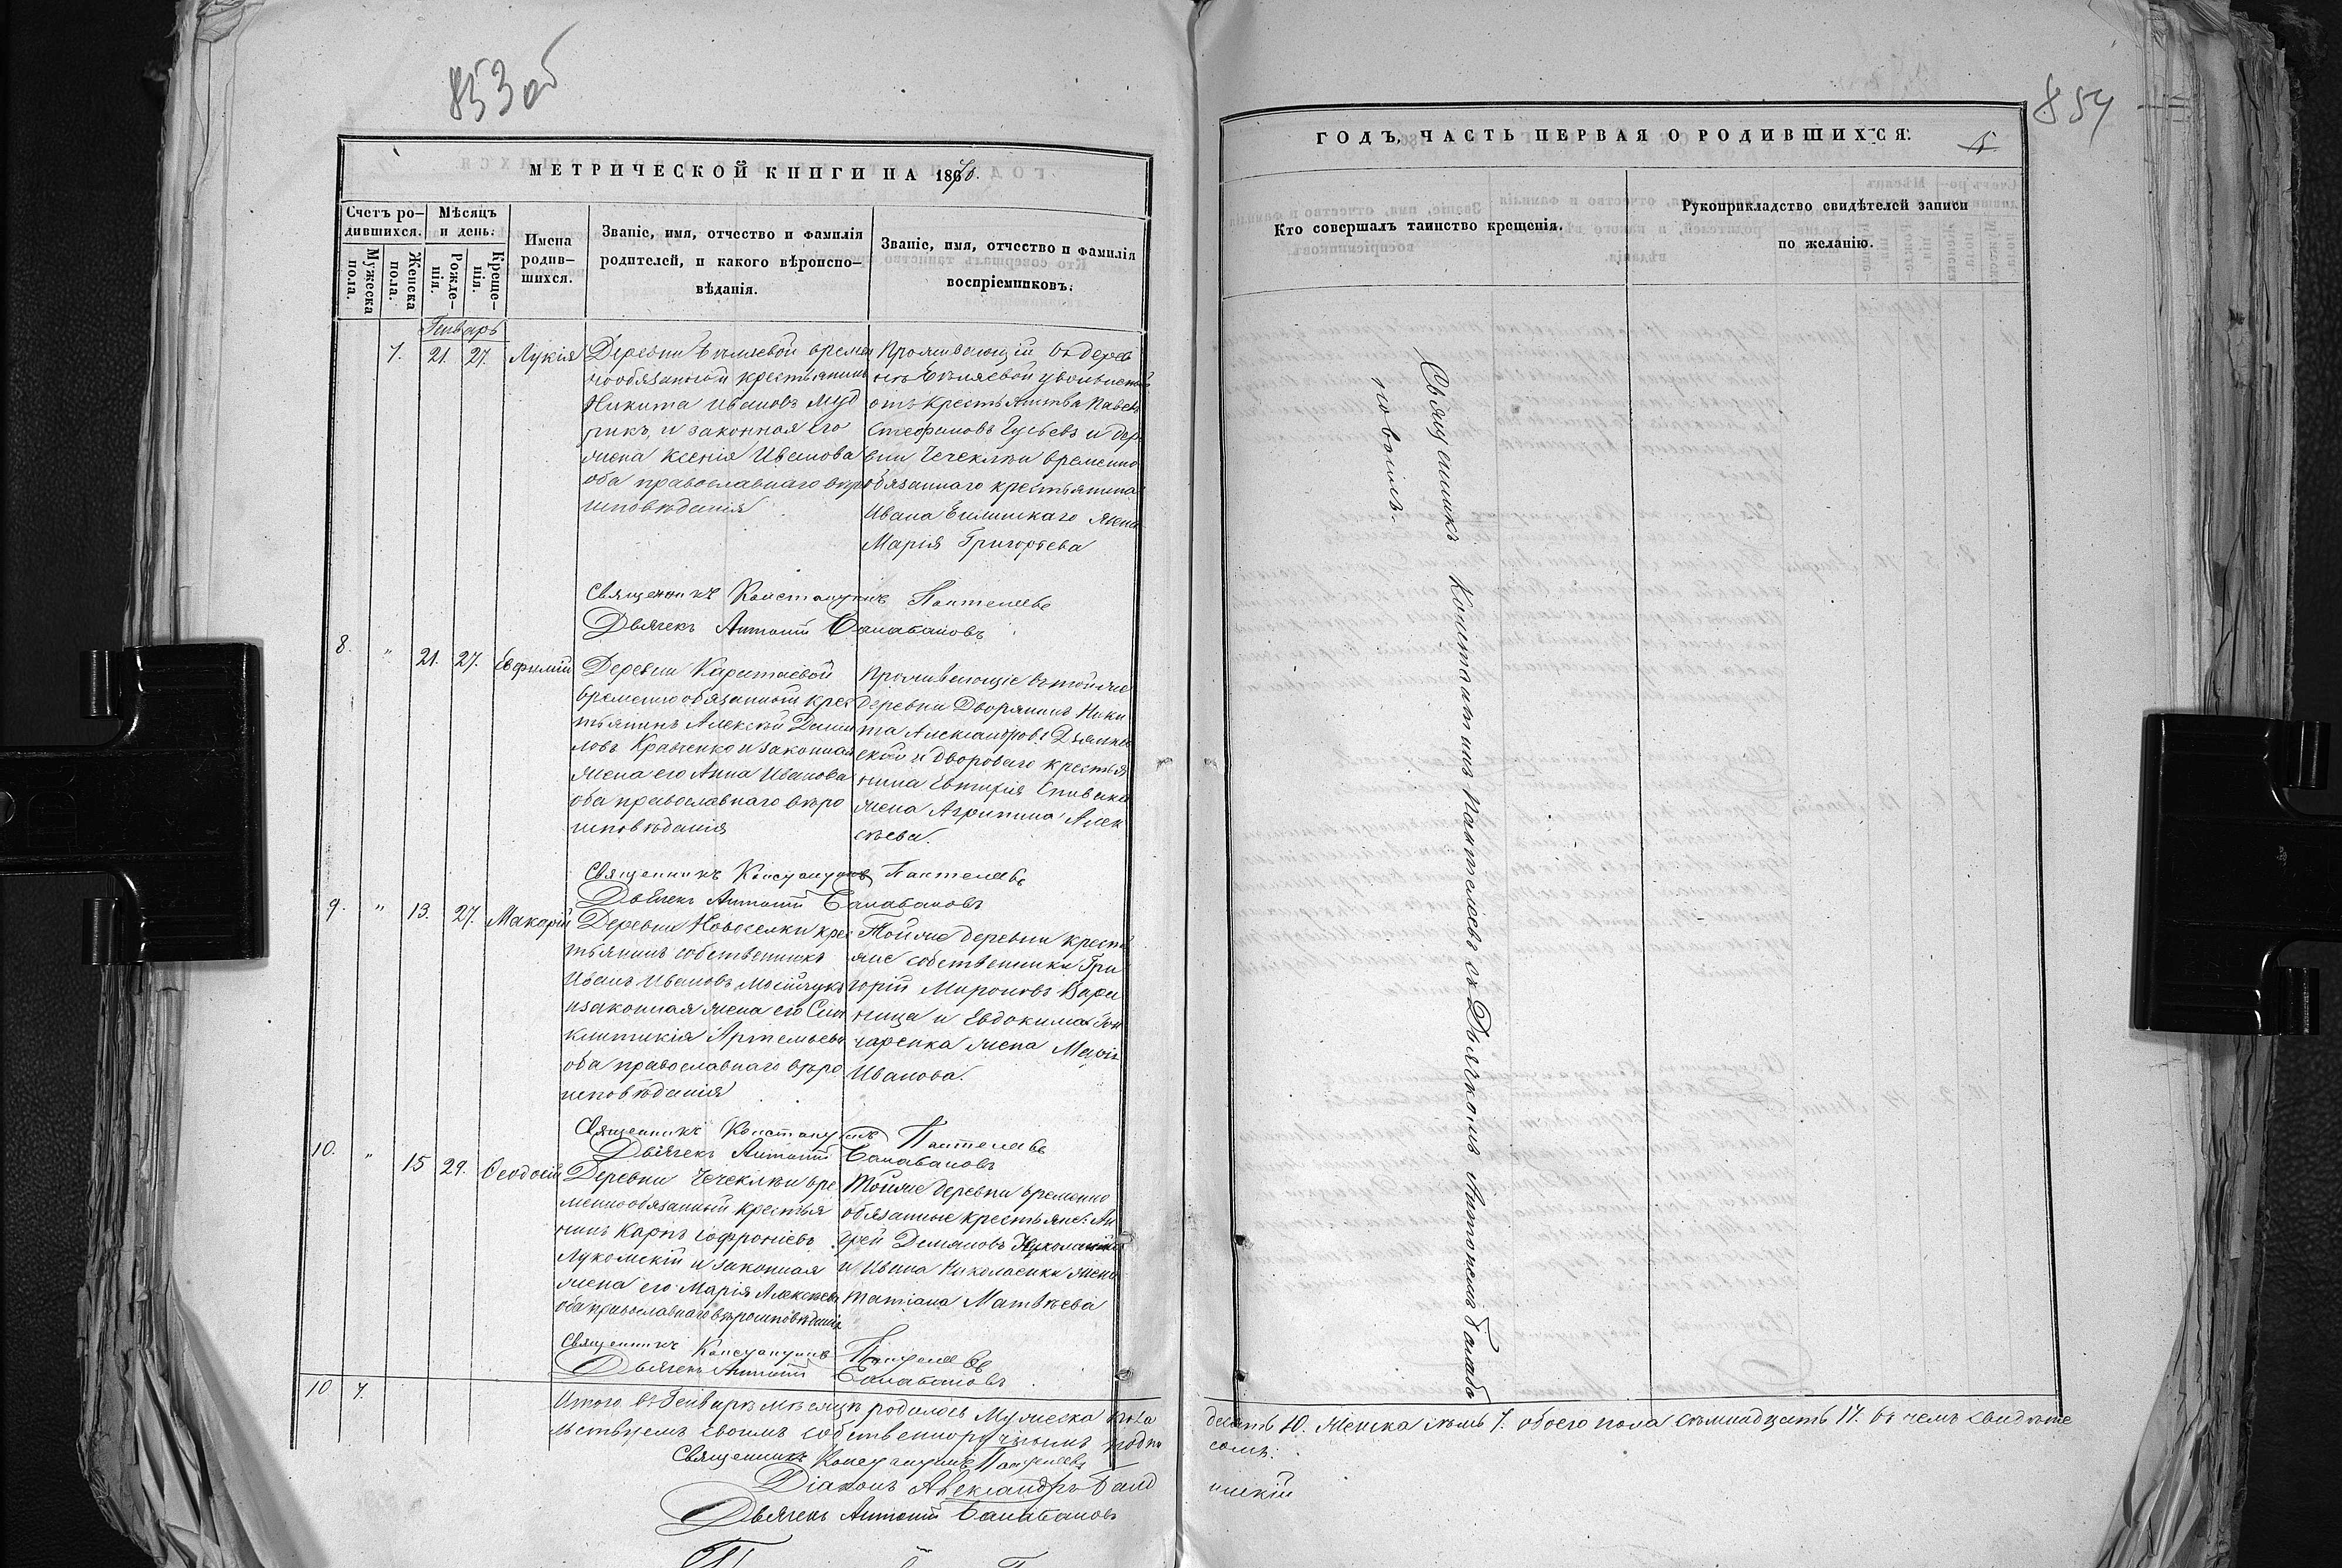 853 об
МЕТРИЧЕСКОЙ КНИГИ НА 1870.
Счетъ ро-
дившихся.
Мужеска пола.
Женска пола.
Мѣсяцъ
и день.
Рожде-
нія.
Креще-
нія.
Имена
родив-
шихся.
Званіе, имя, отчество и фамилія
родителей, и какого вѣроиспо-
вѣданія.
Званіе, имя, отчество и фамилія
воспріемниковъ.
Генварь
7. 21. 27. Лукія
Деревни Бѣляевой времен
нообязанный крестьянинъ
Никита Ивановъ Муд
рикъ, и законная его
жена Ксенія Иванова
оба православнаго вѣро
исповѣданія
Проживающій въ дерев
нѣ Бѣляевой уволенный
отъ крестьянства Павелъ
Стефановъ Гусевъ и дер
вни Чечелѣки временно
обязаннаго крестьянина
Ивана жена
Марія Григорьева
Священникъ Константинъ Пантелеевъ
Дьячекъ Антоній Балабановъ
8. " 21. 27. Евфимій
Деревни
временнообязанный крес
тьянинъ Алексѣй Дани
ловъ Кравченко и законная
жена его Анна Иванова
оба православнаго вѣро
исповѣданія
Проживающіе въ той же
деревни Дворянинъ Ники
та Александровъ
ской и двороваго крестья
нина Евтифія Спивака
жена Агрипина Алек
сѣева.
Священникъ Константинъ Пантелеевъ
Дьячекъ Антоній Балабановъ
9. " 13. 27. Макарій
Деревни Новоселки крес
тьянинъ собственникъ
Иванъ Ивановъ
и законная жена его Син
клитикія Артемьева
оба православнаго вѣро
исповѣданія
Той же деревни крестья
яне собственники Гри
горій Мироновъ Вари
ница и Евдокима Гон
чаренка жена Марія
Иванова.
Священникъ Константинъ Пантелеевъ
Дьячекъ Антоній Балабановъ
10. " 15 29. Ѳеодосій
Деревни Чечелѣки вре
меннообязанный крестья
нинъ Карпъ Софроніевъ
Лукомскій и законная
жена его Марія Алексѣева
оба православнаго вѣроисповѣданія
Той же деревни временно
обязанные крестьяне: Ан
дрей Демяновъ
и Ивана Николаенка жена
Татіана Матвѣева
Священникъ Константинъ Пантелеевъ
Дьячекъ Антоній Балабановъ
10 7.
Итого въ Генварѣ мѣсяцѣ родилось Мужеска пола
льствуемъ своимъ собственноручнымъ подпи
Священникъ Константинъ Пантелеевъ
Діаконъ Александръ Балд
Дьячекъ Антоній Балабановъ
854
ГОДЪ, ЧАСТЬ ПЕРВАЯ О РОДИВШИХСЯ.
Кто совершалъ таинство крещенія.
Рукоприкладство свидѣтелей записи
по желанію.
Священникъ Константинъ Пантелеевъ съ Дьячкомъ Антоніемъ Балаба
новымъ.
десять 10. Женска семь 7. обоего пола семнадцать 17. въ чемъ свидѣте
сомъ:
инскій